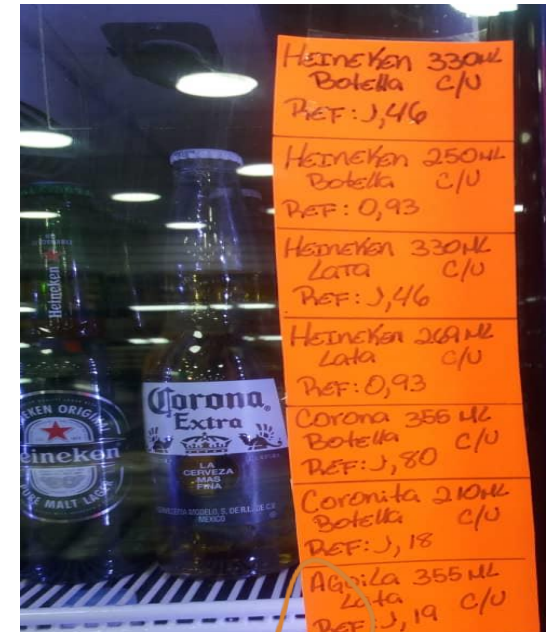 Heineken 330ML
Botella C/U
REF: 1,46
Heineken 250ML
Botella C/U
REF: 0,93
Heineken 330ML
Lata C/U
REF: 1,46
Heineken 269ML
Lata C/U
REF: 0,93
Corona 355ML
Botella C/U
REF: 1,80
Coronita 210ML
Botella C/U
REF: 1,18
AGuiLa 355ML
Lata C/U
REF: 1,19
Heineken
EKEN ORIGI
eineken
URE MALT LAGE
Corona.
Extra
LA
CERVEZA
MAS
FINA
MEXICO